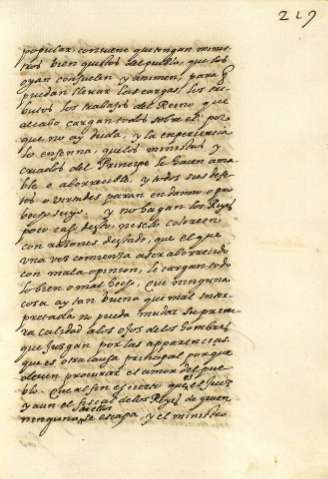 219
popular, conviene que tengan minis
tros bien quistos del pueblo, que los
oyan consuelen y animen, para q̃
puedan llevar las cargas, los tri
butos los trabajos del Reino, que
al cabo cargan todos sobre el: por
que no ay duda, y la experiencia
lo enseña, que los ministros y
criados del Principe le hacen ama
ble o aborrecible, y todos sus defec
tos o virtudes paran en daño o pro
becho suyo. y no hagan los Reyes
poco caso desto, ni se le coloreen
con razones de estado, que el que
una vez comienza a ser aborrecido
con mala opinion, le cargan todo
lo bien o mal hecho, que ninguna
cosa ay tan buena que mal inter
pretada no pueda mudar su prime
ra calidad a los ojos de los hombres
que juzgan por las apparencias.
que es otra causa principal porque
deven procurar el amor del pue
blo. Que al fin es cierto que es Juez
y aun el fiscal de los Reyes de quien
ninguna se escapa, y el ministro